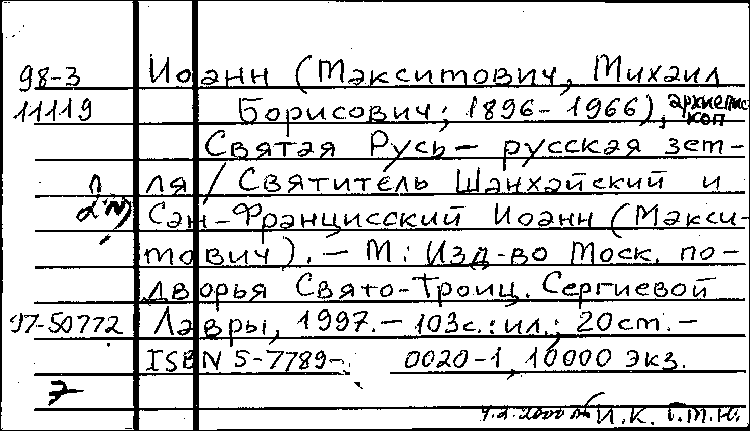 98-3 Иоанн (Максимович, Михаил
11119 Борисович; 1896-1966), архиепископ
Святая Русь — русская зем-
ля / Святитель Шанхайский и
Сан-Францисский Иоанн (Макси-
мович). — М: Изд-во Моск. по-
дворья Свято-Троиц. Сергиевой
97-50772 Лавры, 1997. — 103с.: ил.; 20см. —
ISBN 5-7789- 0020-1, 10000 экз.
И.К. Г.М.Н.